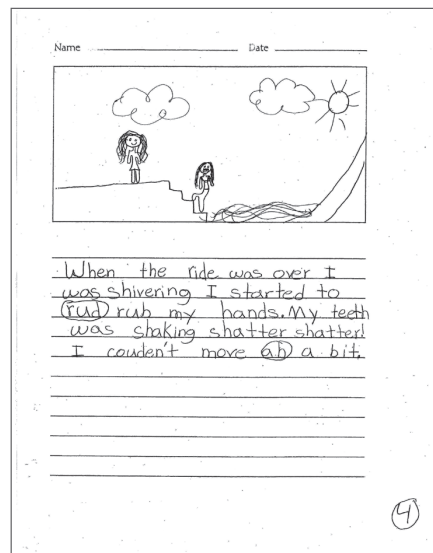 Name Date
When the ride was over I
was shivering I started to
rud rub my hands. My teeth
was shaking shatter shatter!
I couden't move ab a bit.
4